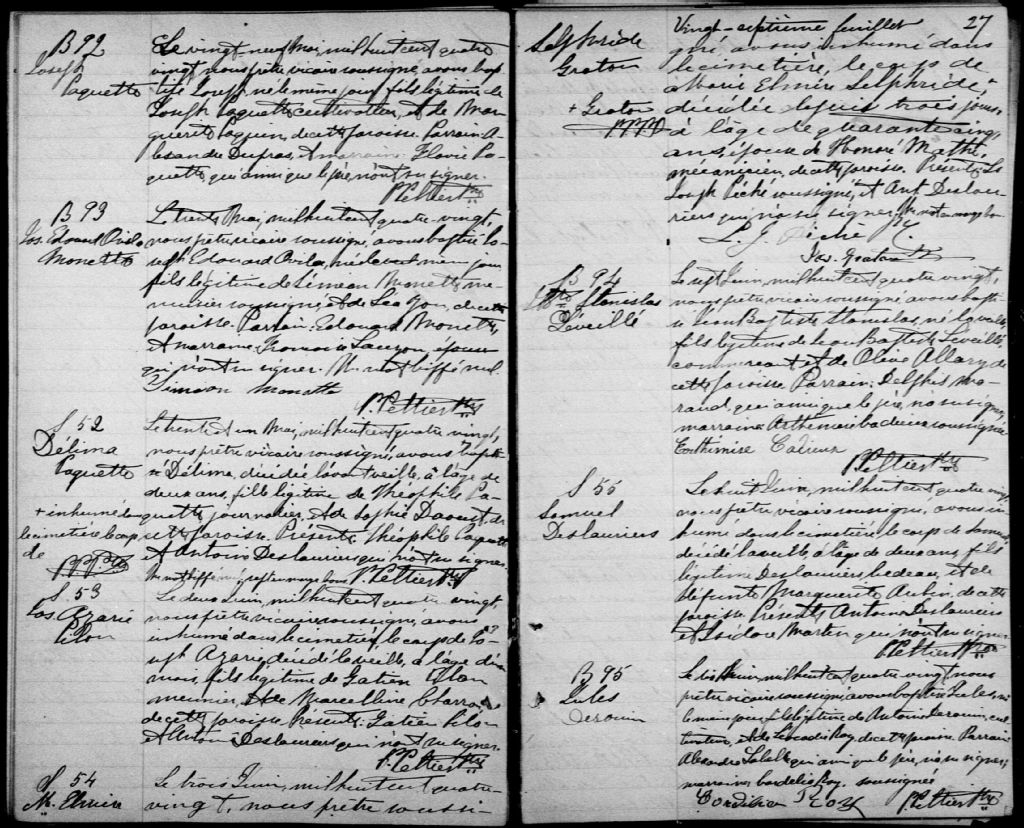 B 92
Joseph
Paquette
Le vingt neuf Mai, mil huit cent quatre
vingt, nous prêtre vicaire soussigné, avons bap
tisé Joseph né le même jour, fils légitime de
Joseph Paquette cultivateur, et de Mar
guerite Paquin, de cette paroisse. Parrain A
lexandre Dupras, et marraine Flavie Pa
quette, qui ainsi que le père, n'ont su signer.
P. Peltier Ptre
B 93
Jos. Edouard Ovila
Monette
Le trente Mai, mil huit cent quatre vingt,
nous prêtre vicaire soussigné, avons baptisé Jo-
seph Edouard Ovila, né le vet même jour
fils légitime de Siméon Monette, me
nuisier soussigné, et de Léa Yon, de cette
paroisse. Parrain: Edouard Monette,
et marraine: Lauzon, épouse
qui n'ont su signer. Un mot biffé nul.
Siméon Monette
P. Peltier Ptre
S 52
Délima
Paquette
+ inhumé dans
le cimetière le corps
de
Le trente et un Mai, mil huit cent quatre vingt,
nous prêtre vicaire soussigné, avons +
Délima, décédée l'avant veille, à l'âge de
deux ans, fille légitime de Théophile Pa
quette, journalier, et de Sophie Daoust, de
cette paroisse. Présents, Théophile Paquette
et Antoine Deslauriers qui n'ont su signer.
P. Peltier Ptre
S. 53
Jos. Azarie
Pilon
Le deux Juin, mil huit cent quatre vingt,
nous prêtre vicaire soussigné, avons
inhumé dans le cimetière, le corps de Jo-
seph Azarie, décédé la veille, à l'âge de
mois, fils légitime de Gatien Pilon
meunier, et de Marcelline
de cette paroisse. Présents: Gatien Pilon
et Antoine Deslauriers qui n'ont su signer.
P. Peltier Ptre
S 54
M. Elmire
Le trois Juin, mil huit cent quatre-
vingt, nous prêtre soussi-
27
Vingt-septième feuillet
Selphride
Graton
+ Graton
gné avons inhumé dans
le cimetière, le corps de
Marie Elmire Selphride, +
décédée depuis trois jours,
à l'âge de quarante cinq
ans, épouse de Honoré Mathe,
mécanicien, de cette paroisse. Présents Ls
Joseph Piché soussigné, et Ant. Deslau
riers qui n'a su signer.
L. J. Piché Ptre
Jos. Graton Ptre
B 94
Stanislas
Léveillé
Le sept Juin, mil huit cent quatre vingt,
nous prêtre vicaire soussigné avons bapti-
sé Jean Baptiste Stanislas, né la veille,
fils légitime de Jean Baptiste Léveillé,
commerçant et de Olive Allary de
cette paroisse Parrain: Delphis Mo-
rand, qui ainsi que le père, n'a su signer,
marraine soussignée
Cadieux
P. Peltier Ptre
S 55
Samuel
Deslauriers
Le huit Juin, mil huit cent quatre vingt
nous prêtre vicaire soussigné, avons in
humé dans le cimetière le corps de Samuel
décédé la veille, à l'âge de deux ans, fils
légitime Deslauriers bedeau, et de
défunte Marguerite Aubin, de cette
paroisse. Présents, Antoine Deslauriers
et Isidore Martin qui n'ont su signer
P. Peltier Ptre
B 95
Jules
Derouin
Le Juin, mil huit cent quatre vingt nous
prêtre vicaire soussigné avons baptisé Jules né
le même jour, fils légitime de Antoine Derouin, cul
tivateur, et de Léocadie Roy de cette paroisse Parrain
Alexandre qui ainsi que le père, n'a su signer,
marraine Cordelia Roy, soussignée
Cordelia Roy
P. Peltier Ptre